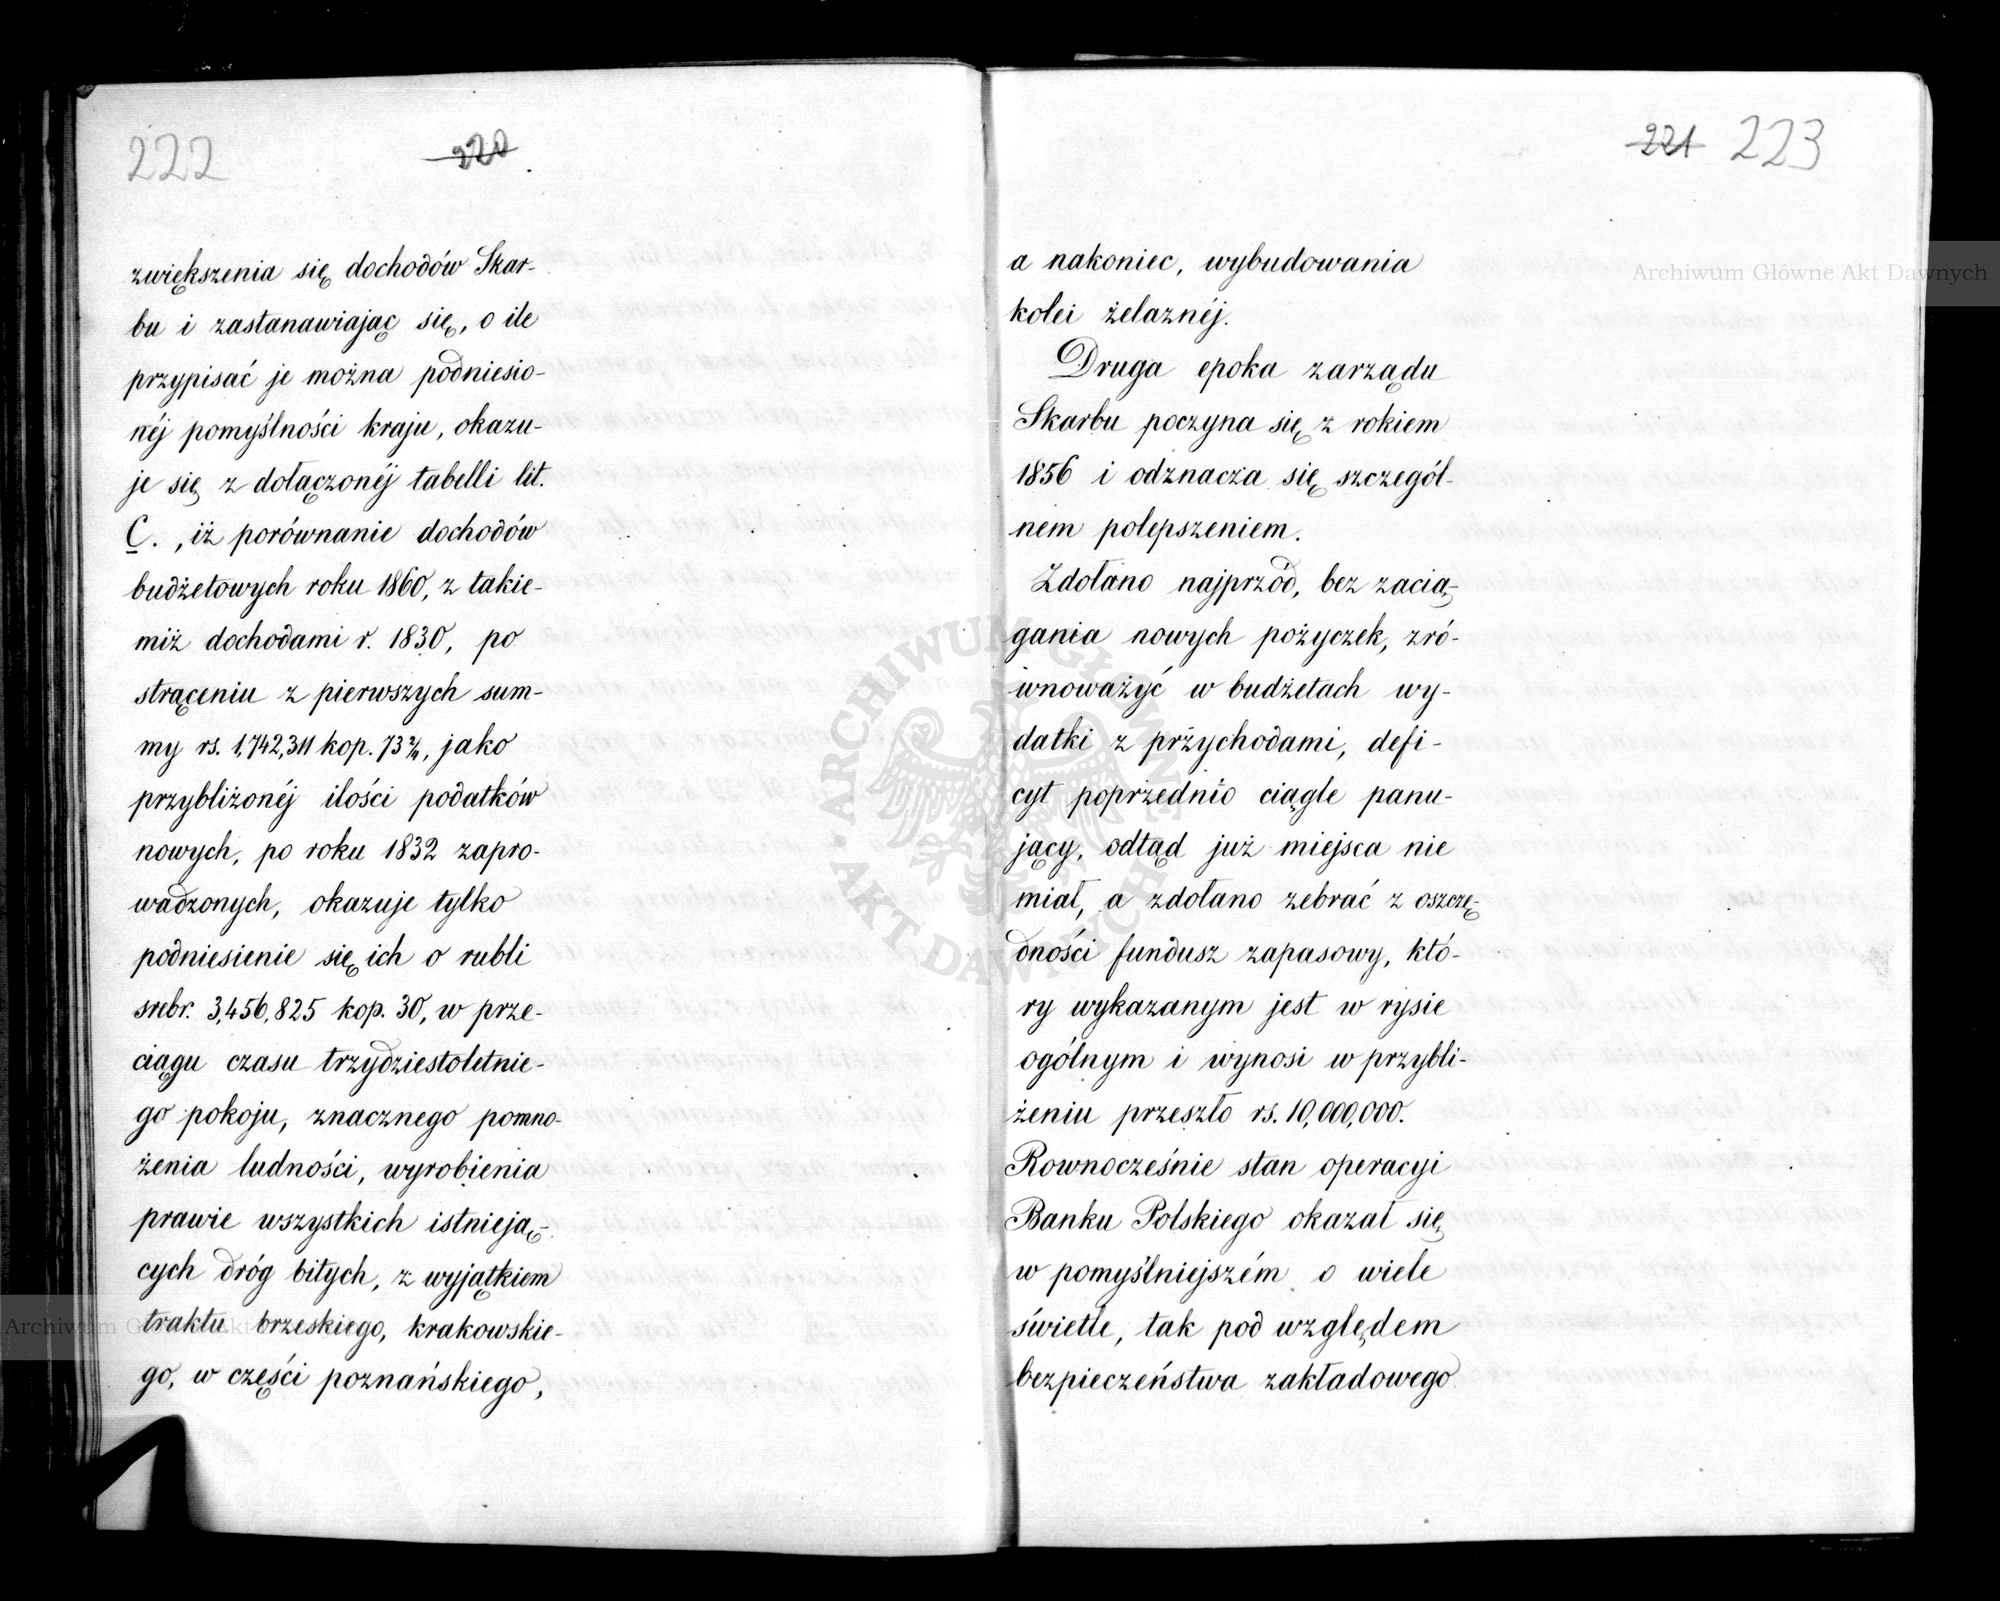 222
220
zwiększenia się dochodów Skar-
bu i zastanawiając się, o ile
przypisać je można podniesio-
néj pomyślności kraju, okazu-
je się z dołączonéj tabelli lit.
C., iż porównanie dochodów
budżetowych roku 1860, z takie-
miż dochodami r. 1830, po
strąceniu z pierwszych sum-
my rs. 1,742,311 kop. 73, jako
przybliżonéj ilości podatków
nowych, po roku 1832 zapro-
wadzonych, okazuje tylko
podniesienie się ich o rubli
srebr. 3,456,825 kop. 30, w prze-
ciągu czasu trzydziestoletnie-
go pokoju, znacznego pomno-
żenia ludności, wyrobienia
prawie wszystkich istnieją-
cych dróg bitych, z wyjątkiem
traktu brzeskiego, krakowskie-
go, w części poznańskiego,
221 223
a nakoniec, wybudowania
kolei żelaznéj.
Druga epoka zarządu
Skarbu poczyna się z rokiem
1856 i odznacza się szczegól-
nem polepszeniem.
Zdołano najprzód, bez zacią-
gania nowych pożyczek, zró-
wnoważyć w budżetach wy-
datki z przychodami, defi-
cyt poprzednio ciągle panu-
jący, odtąd już miejsca nie
miał, a zdołano zebrać z oszczę-
dności fundusz zapasowy, któ-
ry wykazanym jest w rysie
ogólnym i wynosi w przybli-
żeniu przeszło rs. 10,000,000.
Rownocześnie stan operacyi
Banku Polskiego okazał się
w pomyślniejszém o wiele
świetle, tak pod względem
bezpieczeństwa zakładowego
Archiwum Główne Akt Dawnych
ARCHIWUM GŁÓWNE AKT DAWNYCH
Archiwum Główne Akt Dawnych